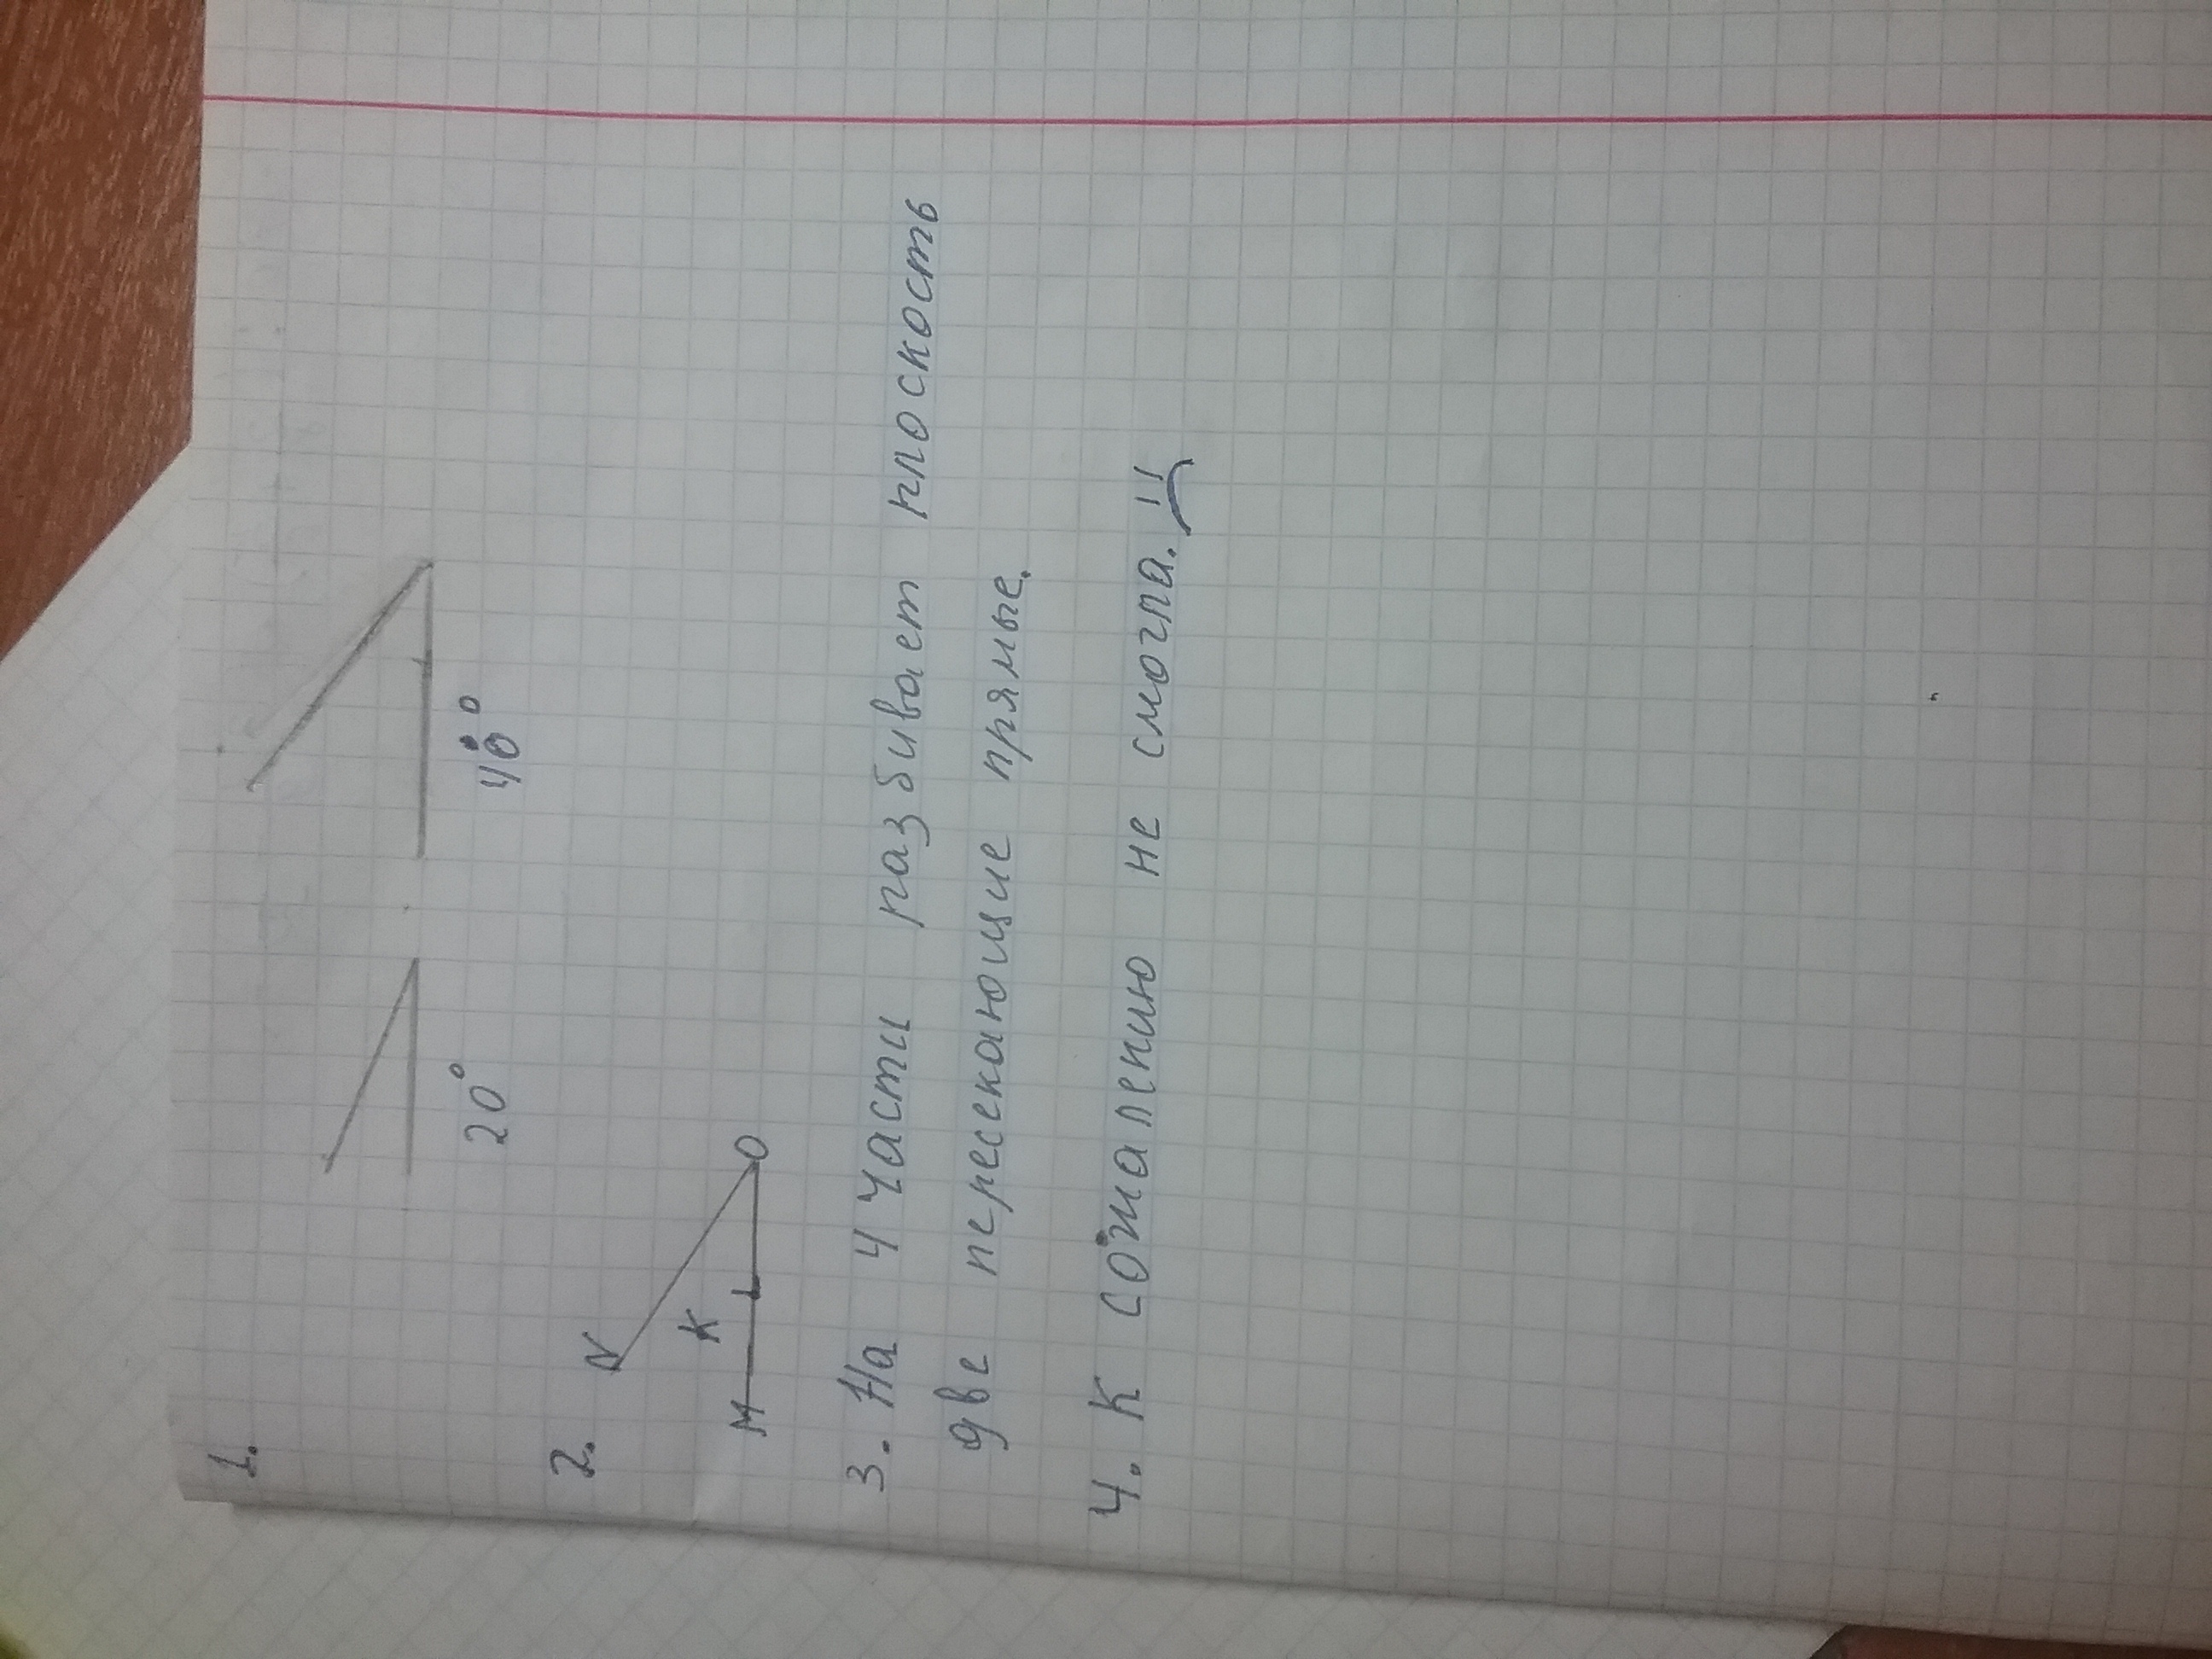 1.
20° 40°
2.
N
K
M O
3. На 4 части разбивает плоскость
две пересекающие прямые.
4. К сожалению не смогла.